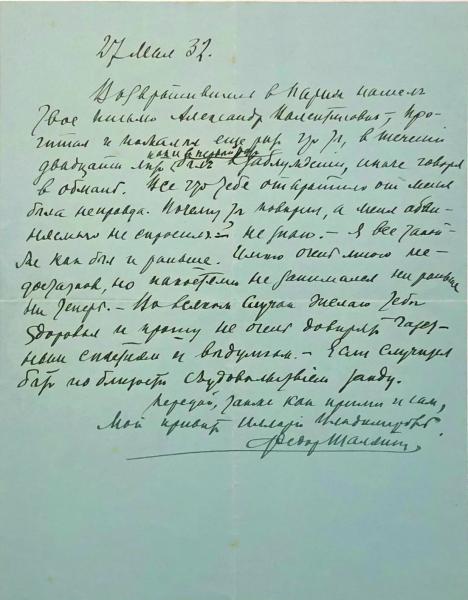 27 Мая 32.
Возвратившись в Париж нашел
твое письмо Александр Валентинович, про-
читал и пожалел еще раз что ты, в течении
двадцати лет был в заблуждении, иначе говоря
в обмане. Все что тебя отвратило от меня
была неправда. Почему ты поверил, а меня обви-
няемого не спросил? не знаю. — Я все такой-
же как был и раньше. Имею очень много не-
достатков, но пакостями не занимался ни раньше
ни теперь. — Во всяком случае желаю тебе
здоровья и прошу не очень доверять газет-
ным сплетням и выдумкам. — Если случится
быть по близости с удовольствием заеду.
Передай, также как прими и сам,
мой привет Илларии Владимировне
Федор Шаляпин